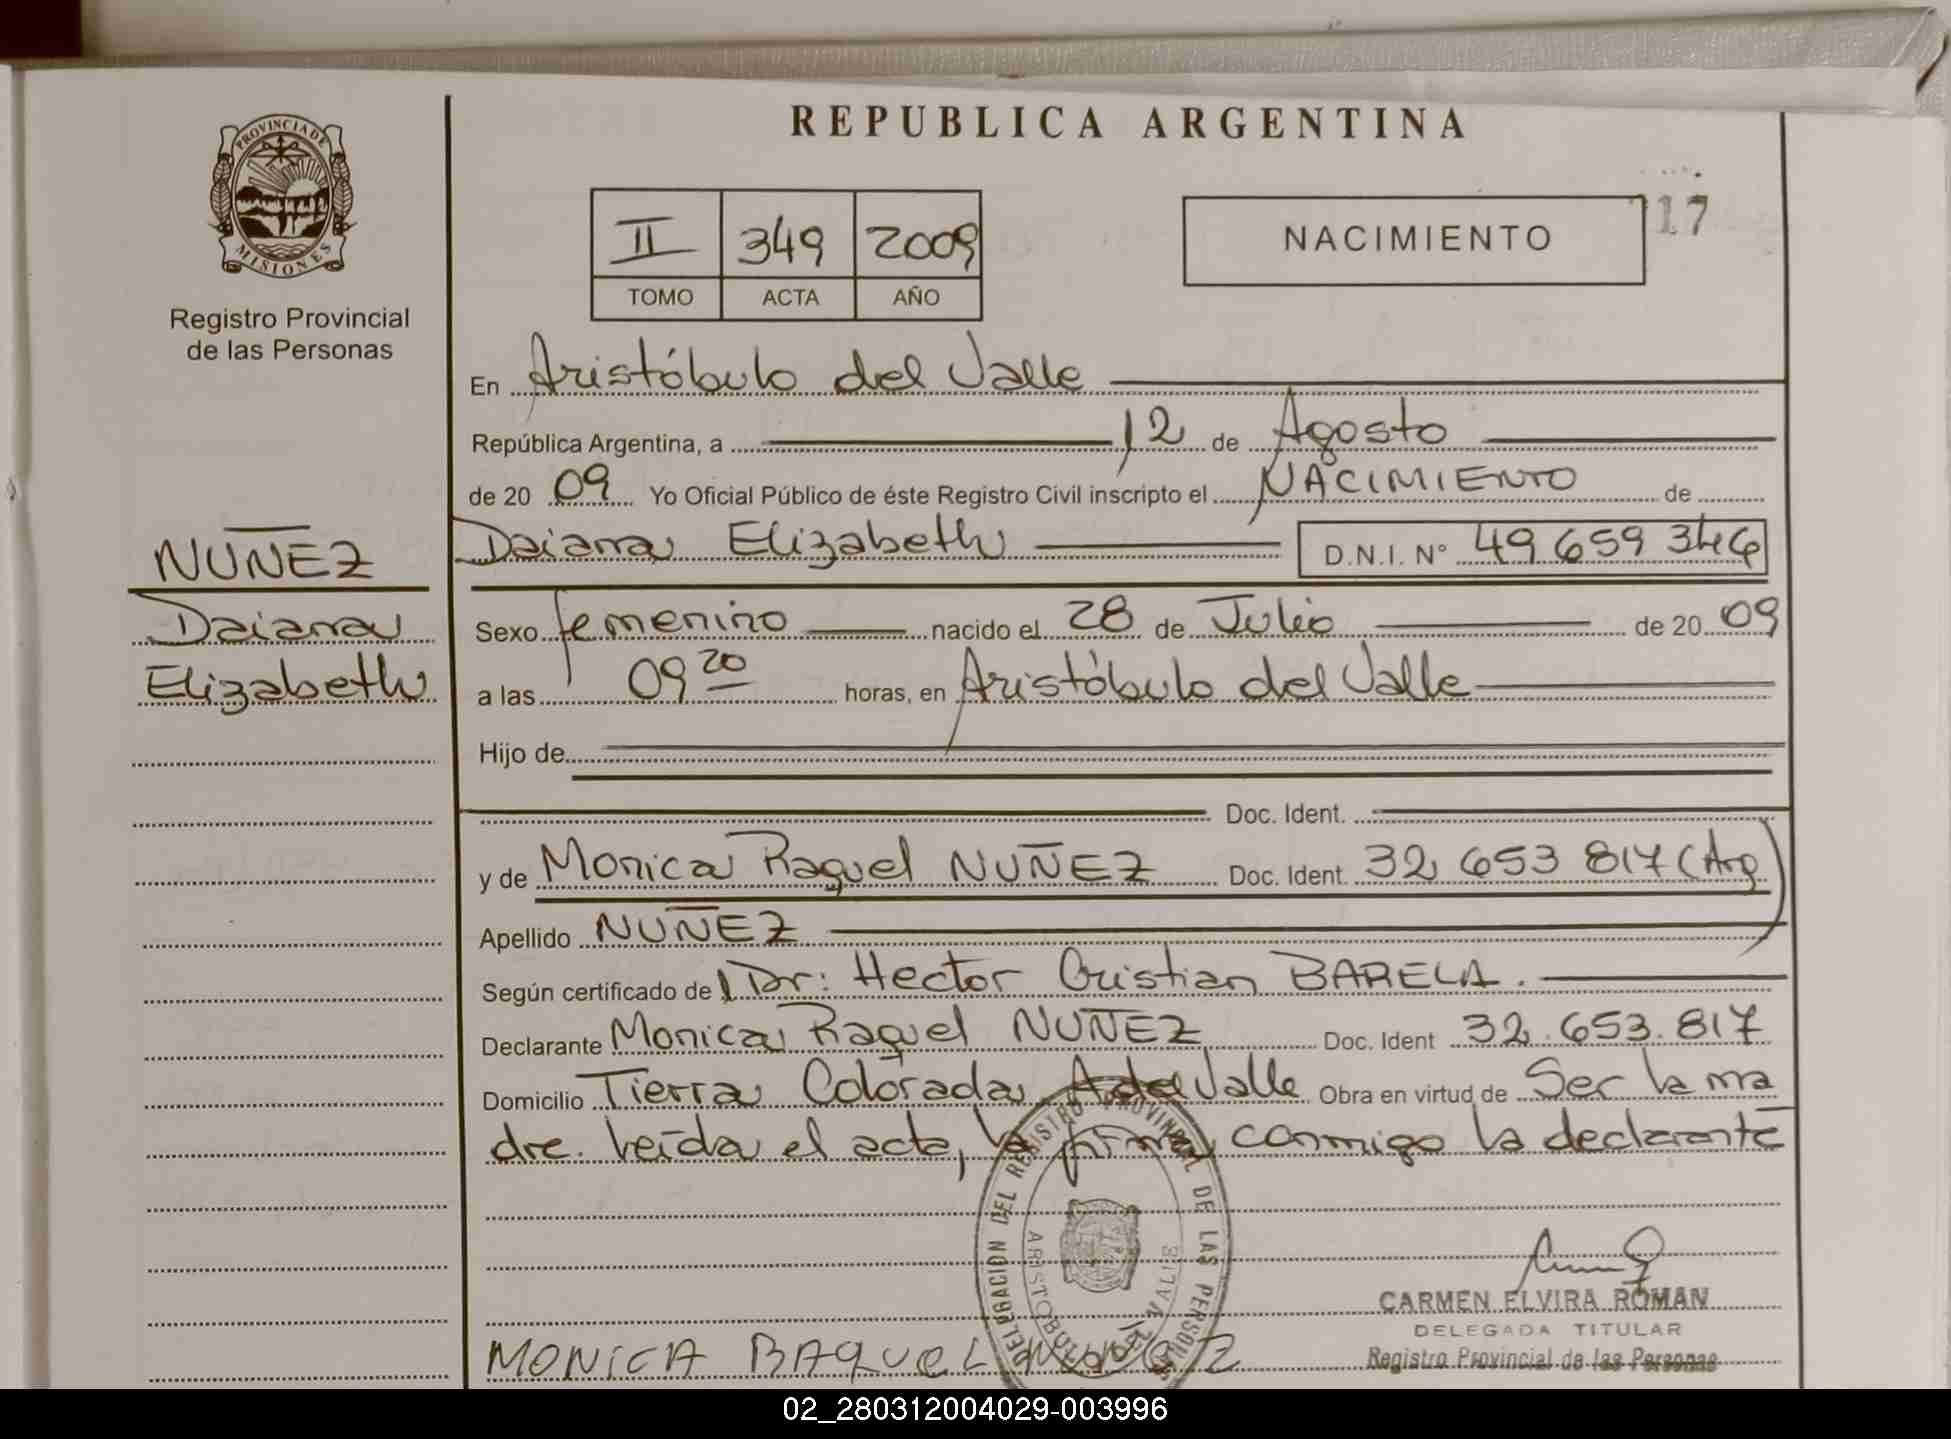 REPUBLICA ARGENTINA
PROVINCIA DE
MISIONES
Registro Provincial
de las Personas
II 349 2009
TOMO ACTA AÑO
NACIMIENTO
17
En Aristóbulo del Valle
República Argentina, a 12 de Agosto
de 20 09 Yo Oficial Público de éste Registro Civil inscripto el NACIMIENTO de
Daiana Elizabeth D.N.I. N° 49 659 346
NUÑEZ
Daiana
Elizabeth
Sexo femenino nacido el 28 de Julio de 20 09
a las 09 20 horas, en Aristóbulo del Valle
Hijo de
Doc. Ident.
y de Monica Raquel NUÑEZ Doc. Ident. 32 653 817 (Arg)
Apellido NUÑEZ
Según certificado de Dr: Hector Cristian BARELA.
Declarante Monica Raquel NUÑEZ Doc. Ident 32.653.817
Domicilio Tierra Colorada A del Valle Obra en virtud de Ser la ma
dre. leída el acta, la firma conmigo la declarante
DELEGACION DEL REGISTRO PROVINCIAL DE LAS PERSONAS
ARISTOBULO DEL VALLE
CARMEN ELVIRA ROMAN
DELEGADA TITULAR
Registro Provincial de las Personas
MONICA RAQUEL NUÑEZ
02_280312004029-003996